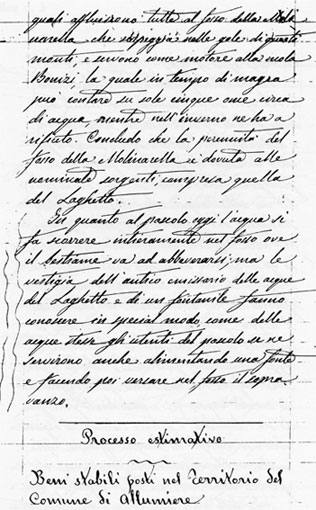 quali affluiscono tutte al fosso della Moli
narella che serpeggia nelle gole di questi
monti, e servono come motore alla mola
Bonizi la quale in tempo di magra
può contare su sole cinque once circa
di acqua, mentre nell'inverno ne ha a
rifiuto. Concludo che la perennità del
fosso della Molinarella è dovuta alle
nominate sorgenti, compresa quella
del Laghetto.
In quanto al pascolo oggi l'acqua si
fa scorrere interamente nel fosso ove
il bestiame va ad abbeverarsi; ma le
vestigia dell'antico emissario delle acque
del Laghetto e di un fontanile fanno
conoscere in special modo, come delle
acque stesse gli utenti del pascolo se ne
servirono anche alimentando una fonte
e facendo poi versare nel fosso il sopra
vanzo.
Processo estimativo
Beni stabili posti nel Territorio del
Comune di Allumiere